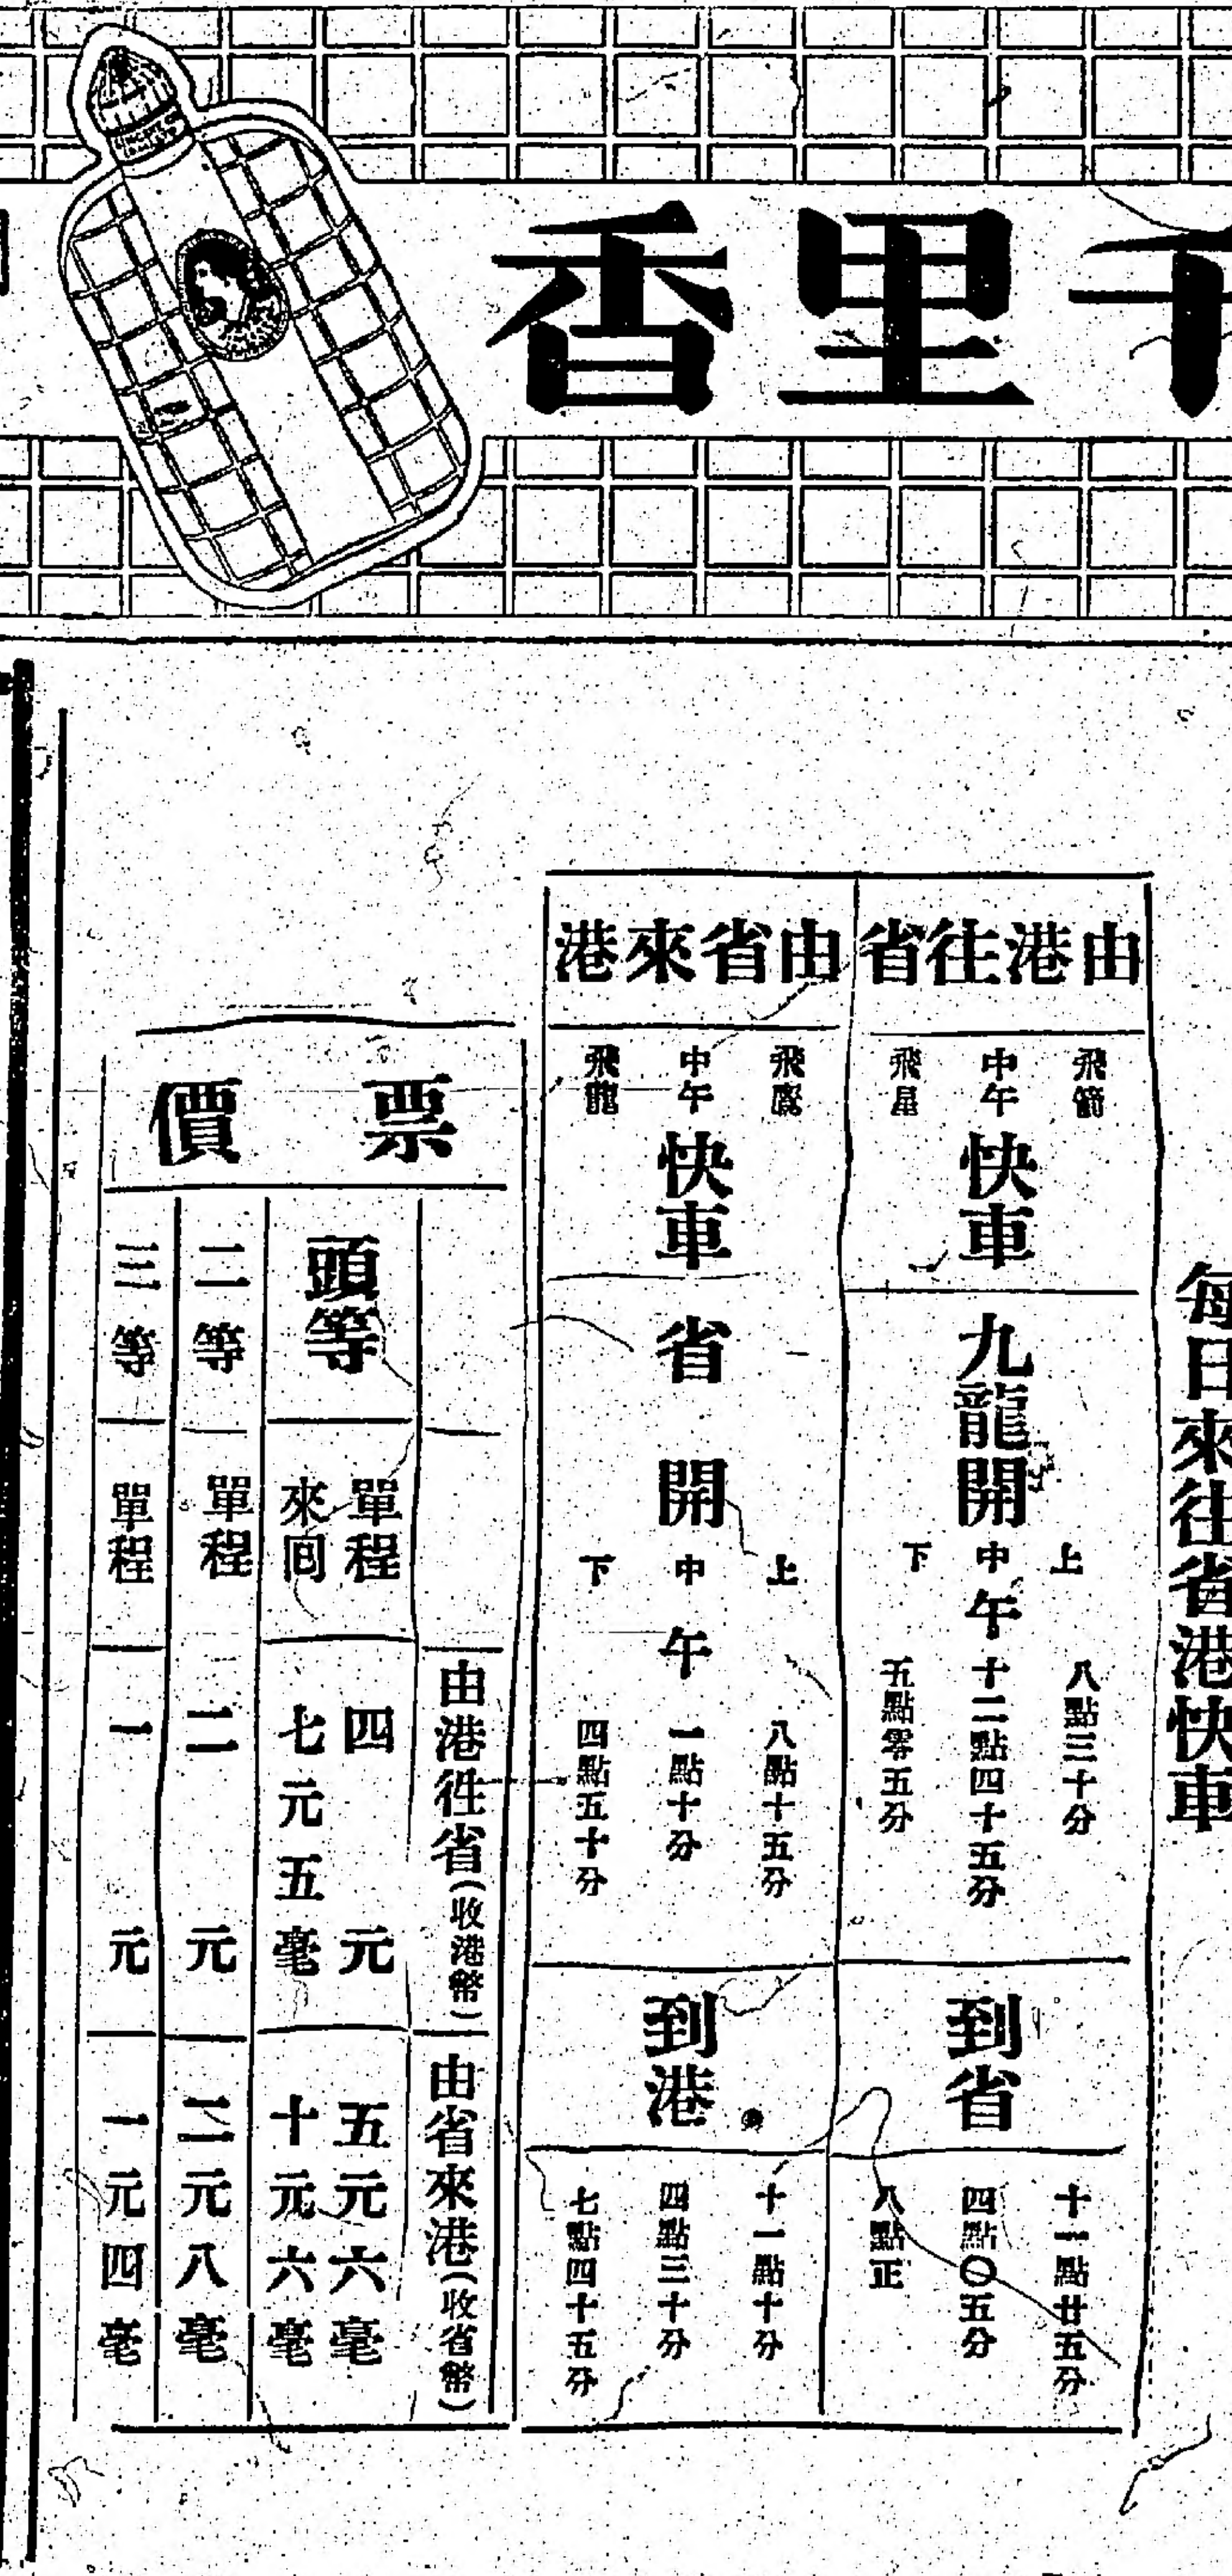 千里香
每日來往省港快車
由港往省
飛箭
中午
飛星
快車
九龍開
上 八點三十分
中午 十二點四十五分
下 五點零五分
到省
十一點廿五分
四點〇五分
八點正
由省來港
飛鷹
中午
飛龍
快車
省開
上 八點十五分
中午 一點十分
下 四點五十分
到港
十一點十分
四點三十分
七點四十五分
票價
由港徃省(收港幣)
由省來港(收省幣)
頭等
單程 四元 五元六毫
來回 七元五毫 十元六毫
二等 單程 二元 二元八毫
三等 單程 一元 一元四毫